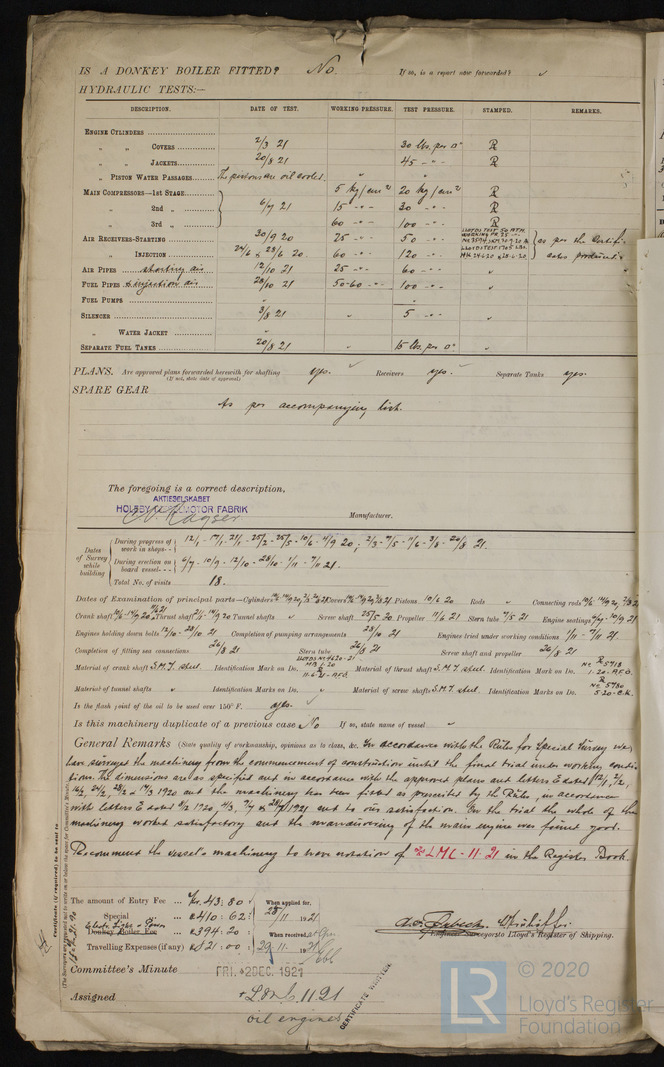 IS A DONKEY BOILER FITTED? No. If so, is a report now forwarded?
HYDRAULIC TESTS:—
DESCRIPTION. DATE OF TEST. WORKING PRESSURE. TEST PRESSURE. STAMPED. REMARKS.
ENGINE CYLINDERS
" " COVERS 2/3 21 30 lbs. per □"
" " JACKETS 20/8 21 45 - " -
" PISTON WATER PASSAGES The pistons are oil cooled.
MAIN COMPRESSORS—1st STAGE 5 kg/cm² 20 kg/cm²
" 2nd " 6/7 21 15 - " - 30 - " -
" 3rd " 60 - " - 100 - " -
AIR RECEIVERS—STARTING 30/9 20 25 - " - 50 - " - as per the certifi-
" INJECTION 24/6 & 28/6 20. 60 - " - 120 - " - cates produced
AIR PIPES starting air 12/10 21 25 - " - 60 - " - "
FUEL PIPES & injection air 28/10 21 50-60 - " - 100 - " - "
FUEL PUMPS "
SILENCER 3/8 21 " 5 - " - "
" WATER JACKET "
SEPARATE FUEL TANKS 20/8 21 " 15 lbs. per □" "
PLANS. Are approved plans forwarded herewith for shafting yes. Receivers yes. Separate Tanks yes.
(If not, state date of approval)
SPARE GEAR
As per accompanying list.
The foregoing is a correct description,
AKTIESELSKABET
HOLEBY DIESELMOTOR FABRIK
Manufacturer.
Dates of Survey while building
During progress of work in shops - -
During erection on board vessel - - - 6/7 - 10/9 - 12/10 - 28/10 - 1/11 - 7/11 21.
Total No. of visits 18.
Dates of Examination of principal parts—Cylinders Covers Pistons 10/6 20 Rods " Connecting rods
Crank shaft Thrust shaft Tunnel shafts " Screw shaft 25/5 20 Propeller 11/6 21 Stern tube 7/5 21 Engine seatings 6/7 - 10/9 21
Engines holding down bolts 12/10 - 28/10 21 Completion of pumping arrangements 28/10 21 Engines tried under working conditions 1/11 - 7/11 21.
Completion of fitting sea connections 26/8 21 Stern tube 26/8 21 Screw shaft and propeller 26/8 21
Material of crank shaft S.M.I. steel. Identification Mark on Do. Material of thrust shaft S.M.I. steel. Identification Mark on Do. No 5718
Material of tunnel shafts " Identification Marks on Do. " Material of screw shafts S.M.I. steel. Identification Marks on Do. No 5780
5-20-C.K.
Is the flash point of the oil to be used over 150° F. yes.
Is this machinery duplicate of a previous case No If so, state name of vessel
General Remarks (State quality of workmanship, opinions as to class, &c. In accordance with the Rules for Special Survey we
have surveyed the machinery from the commencement of construction until the final trial under working condi-
tions. The dimensions are as specified and in accordance with the approved plans and letters E dated 12/1, 2/2,
24/2, 28/2 & 17/3 1920 and the machinery has been fitted as prescribed by the Rules, in accordance
with letters E dated 9/2 1920, 7/7 & 28/7 1921 and to our satisfaction. On the trial the whole of the
machinery worked satisfactory and the manœuvring of the main engine was found good.
Recommend the vessel's machinery to have notation of LMC-11-21 in the Register Book.
Certificate (if required) to be sent to
(The Surveyors are requested not to write on or below the space for Committee's Minute.)
The amount of Entry Fee ... Kr. 43 : 80 When applied for,
Special ... 410 : 62 28/11 1921
Electr. Light & Power
Donkey Boiler Fee ... 394 : 20 When received,
Travelling Expenses (if any) 821 : 00 29.11.1921
Engineer Surveyors to Lloyd's Register of Shipping.
Committee's Minute FRI. 2 DEC. 1921
Assigned + LMC 11.21
oil engines
CERTIFICATE WRITTEN
LR © 2020
Lloyd's Register
Foundation